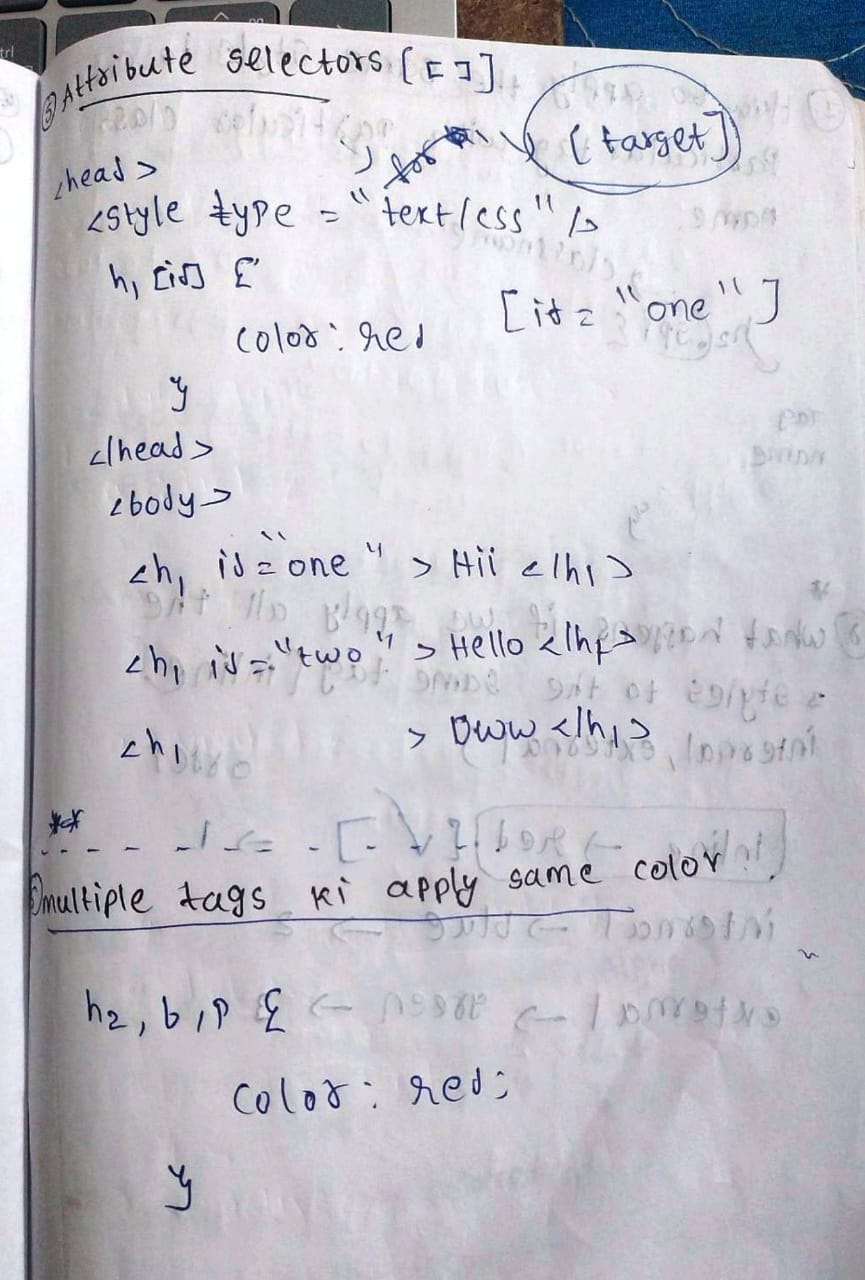 ⑤ Attribute selectors [ [ ] ]
[target]
<head>
<style type = "text/css" />
h1 [id] {
color: red
[id = "one"]
}
</head>
<body>
<h1 id = "one" > Hii </h1>
<h1 id = "two" > Hello </h1>
<h1 > Oww </h1>
**
multiple tags ki apply same color.
h2, b, p {
color: red;
}